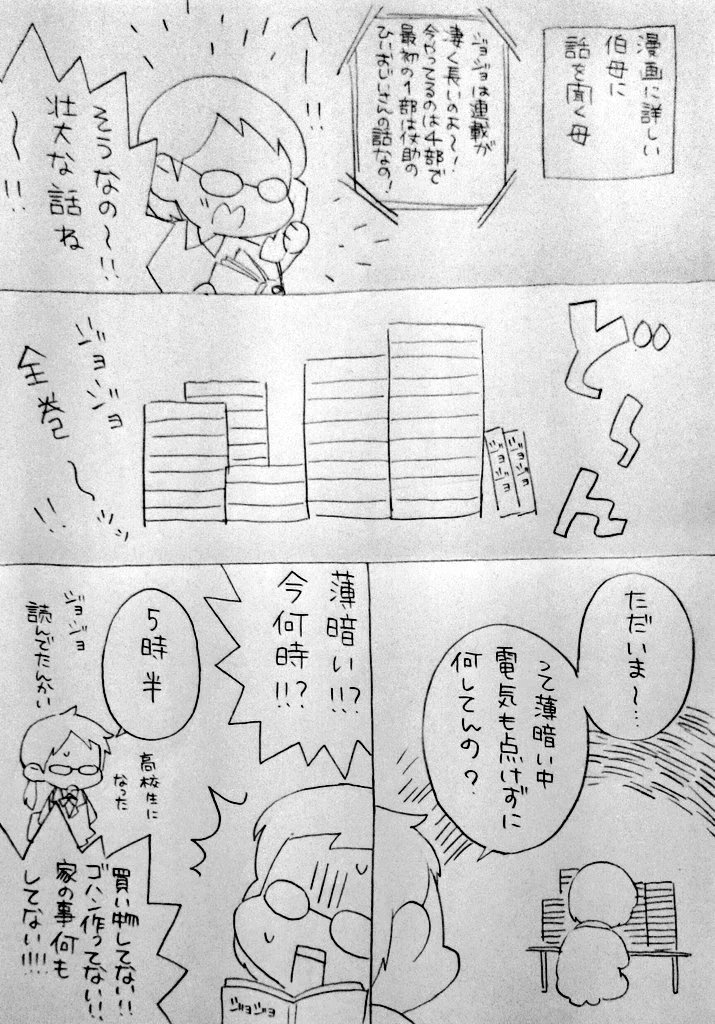 漫画に詳しい
伯母に
話を聞く母
ジョジョは連載が
凄く長いのよ〜！
今やってるのは4部で
最初の1部は仗助の
ひいおじいさんの話なの！
!!
そうなの〜!!
壮大な話ね
〜!!
ど〜ん
ジョジョ
ジョジョ
ジョジョ
全巻〜!!
ただいま〜…
って薄暗い中
電気も点けずに
何してんの？
薄暗い!!?
今何時!!?
ジョジョ
5時半
高校生に
なった
ジョジョ
読んでたんかい
買い物してない!!
ゴハン作ってない!!
家の事何も
してない!!!!